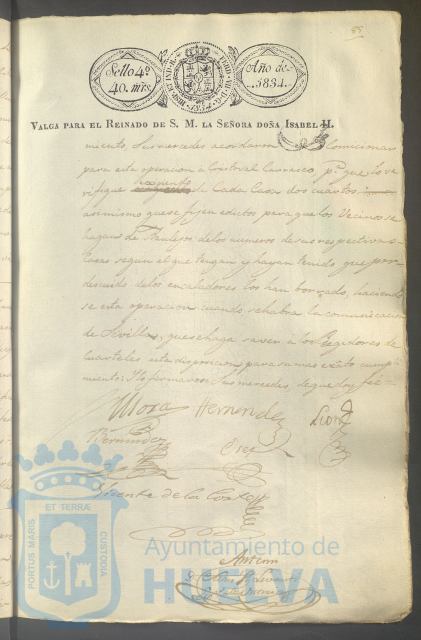 85
Sello 4º
40. mrs
HISP. ET IND. R.
FERD. VII. D. G.
1834
Año de
1834.
VALGA PARA EL REINADO DE S. M. LA SEÑORA DOÑA ISABEL II.
miento. Sus mercedes acordaron Comicionar
para esta operacion a Cristoval Carrasco, pª que lo ve
rifique de Cada Casa dos cuartos
asimismo que se fijen edictos para que los Vecinos se
hagan de Azulejos de los numeros de sus respectivas
Casas segun el que tengan y hayan tenido que por
descuido de los encaladores los han borrado, haciendo
se esta operacion cuando se habra la comunicacion
de Sevilla, y que se haga saver a los Regidores de
Cuarteles esta disposicion para su mas exacto cumpli
miento: Y lo firmaron Sus mercedes, de que doy fee=
Mora Hernandez Leon
Bermudez Cruz
Vicente de la Corte
Ante mi
PORTUS MARIS
ET TERRÆ
CUSTODIA
Ayuntamiento de
HUELVA